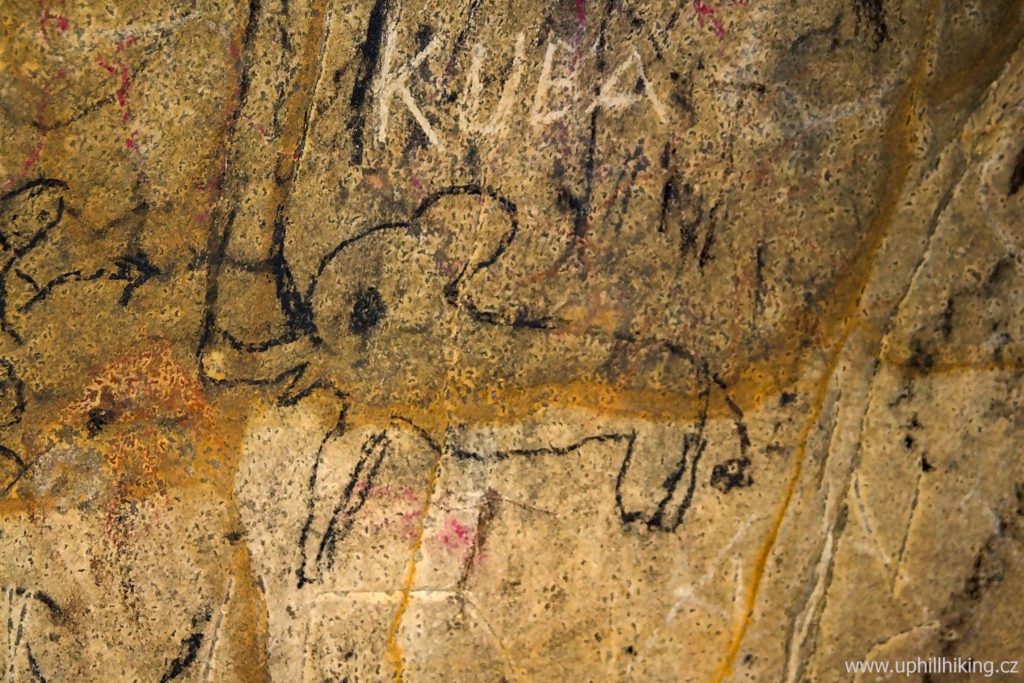 KUBA
www.uphillhiking.cz